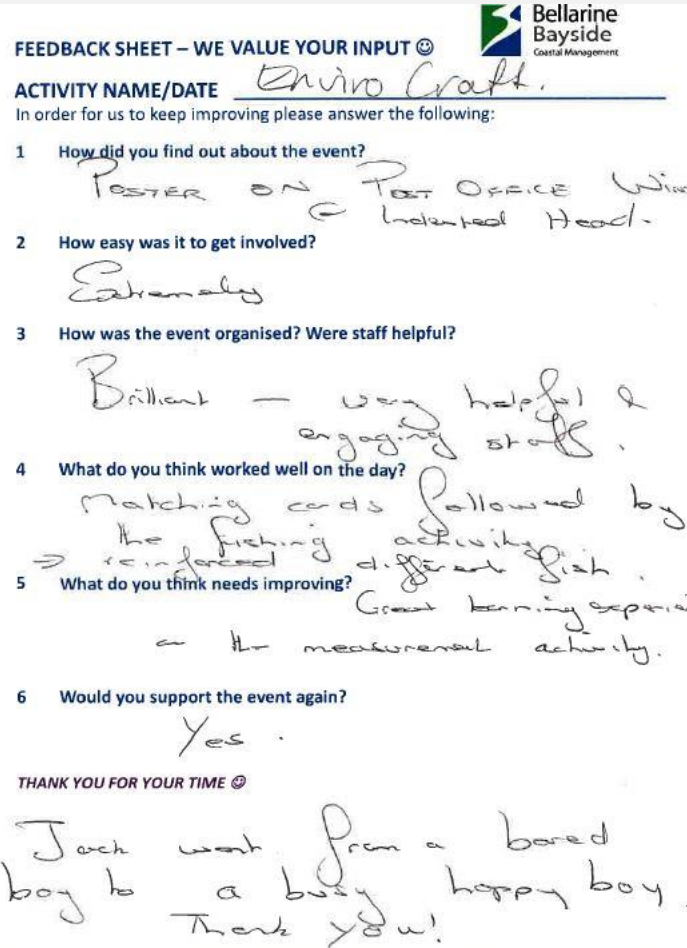 Bellarine
Bayside
Coastal Management
FEEDBACK SHEET – WE VALUE YOUR INPUT ☺
ACTIVITY NAME/DATE Enviro Craft.
In order for us to keep improving please answer the following:
1 How did you find out about the event?
POSTER ON POST OFFICE Win
@ Indented Head.
2 How easy was it to get involved?
Extremely
3 How was the event organised? Were staff helpful?
Brilliant — very helpful &
engaging staff.
4 What do you think worked well on the day?
Matching cards followed by
the fishing activity
⇒ reinforced different fish.
5 What do you think needs improving?
Great learning experie
the measurement activity.
6 Would you support the event again?
Yes.
THANK YOU FOR YOUR TIME ☺
Jack went from a bored
boy to a busy happy boy.
Thank you!